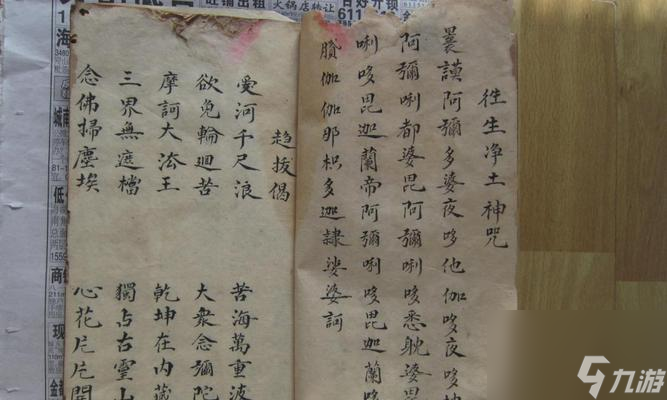 往生净土神咒
曩謨阿彌多婆夜哆他伽哆夜哆
阿彌唎都婆毘阿彌唎哆悉耽婆毘
唎哆毘迦蘭帝阿彌唎哆毘迦蘭哆
膩伽伽那枳多迦隷娑婆訶
趋拔偈
愛河千尺浪 苦海萬重波
欲免輪迴苦 大衆念彌陀
摩訶大法王 乾坤在内藏
三界無遮檔 獨占古靈山
念佛掃塵埃 心花片片開
旺铺出租
火锅店转让
611
海
城南
低
商
现
金
九游